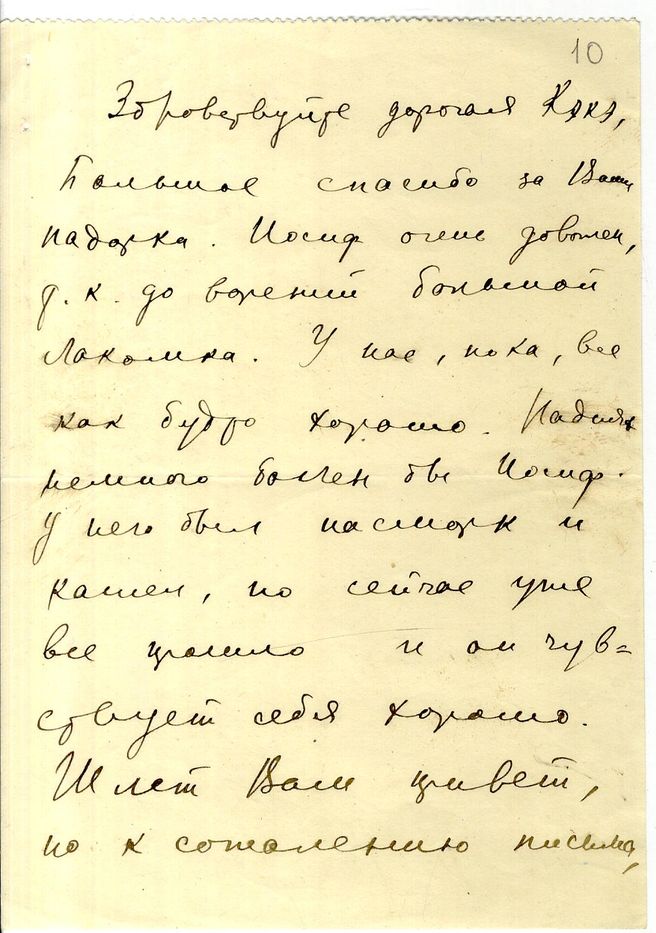 10
Здровствуйте дорогая Кэкэ,
Большое спасибо за Ваши
падарка. Иосиф очень доволен,
т. к. до варений большой
лакомка. У нас, пока, все
как будто хорошо.
немного болен был Иосиф.
У него был насморк и
кашел, но сейчас уже
все прошло и он чув=
ствует себя хорошо.
Шлет Вам привет,
но к сожалению письма,